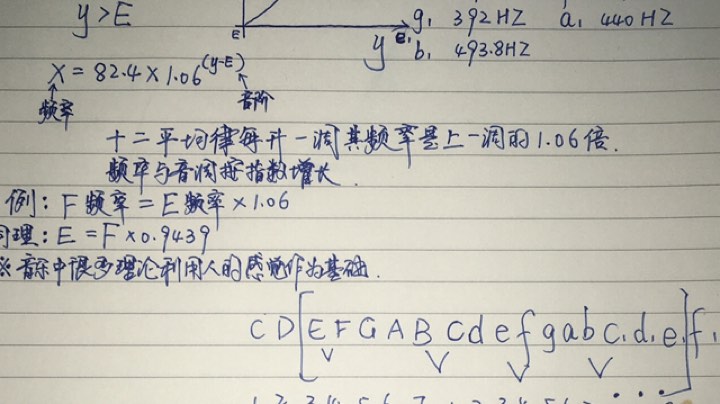 y>E
E
y
e₁
g₁ 392HZ a₁ 440HZ
b₁ 493.8HZ
X = 82.4×1.06^(y-E)
频率
音阶
十二平均律每升一调其频率是上一调的1.06倍.
频率与音调按指数增长.
例: F频率 = E频率×1.06
同理: E = F×0.9439
※音乐中很多理论利用人的感觉作为基础.
C D [E F G A B c d e f g a b c₁ d₁ e₁] f₁
V V V V